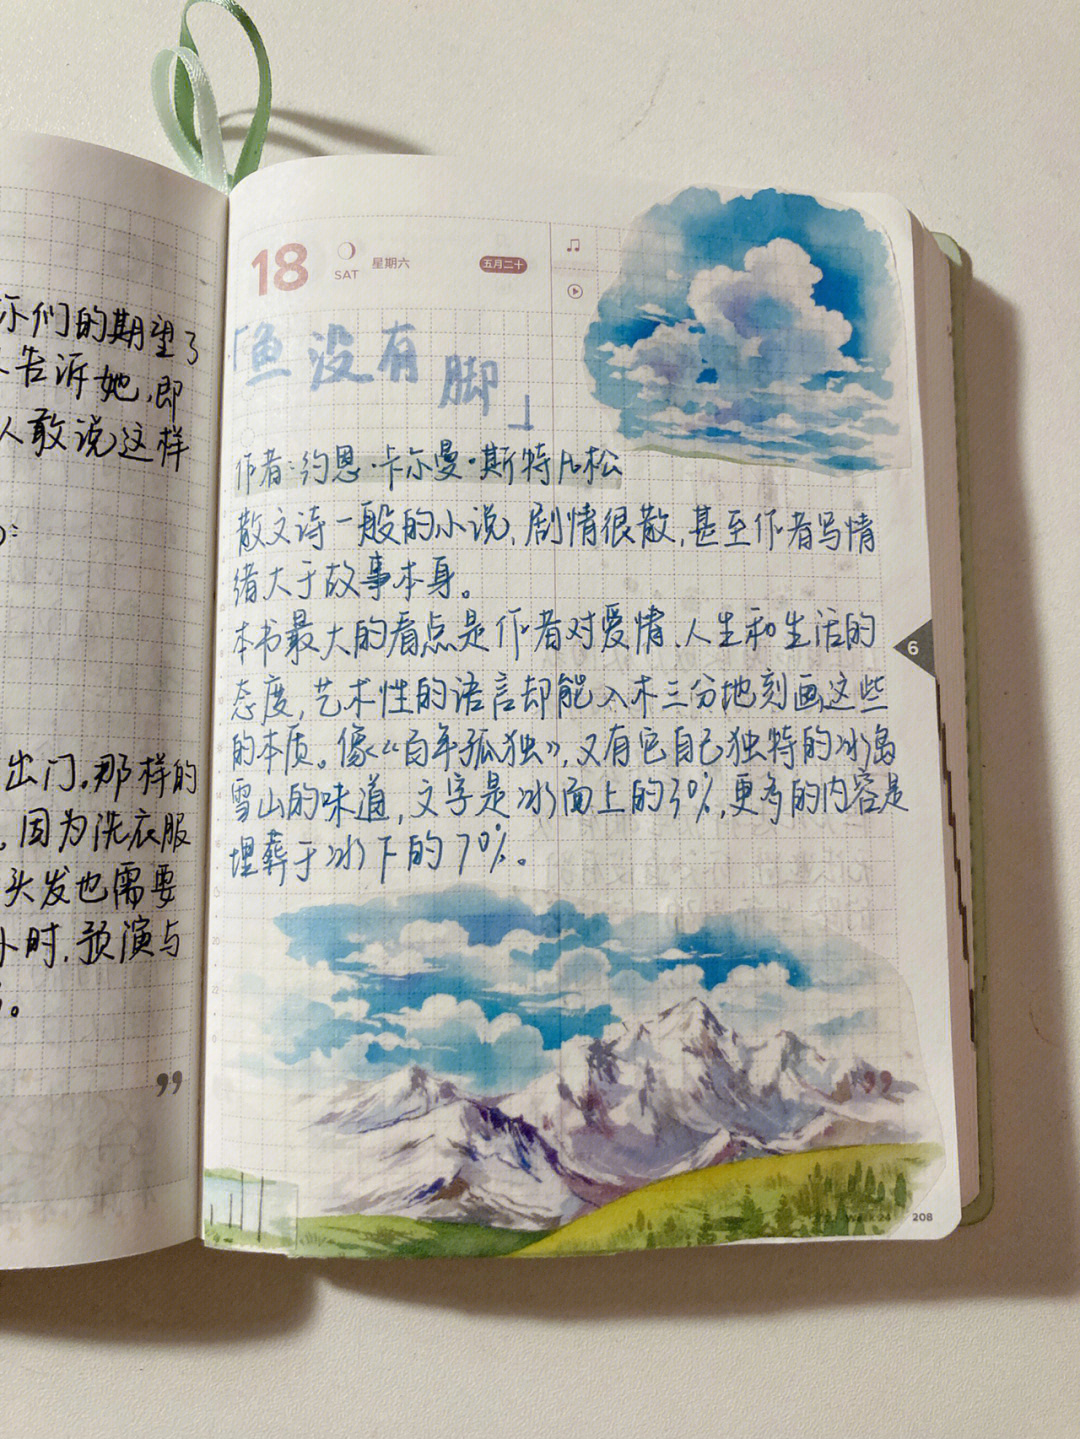 你们的期望了
告诉她,即
人敢说这样
出门。那样的
。因为洗衣服
头发也需要
小时,预演与
”
18
SAT
星期六
五月二十
「鱼没有脚」
作者:约恩·卡尔曼·斯特凡松
散文诗一般的小说,剧情很散,甚至作者写情
绪大于故事本身。
本书最大的看点是作者对爱情、人生和生活的
态度,艺术性的语言却能入木三分地刻画这些
的本质。像《百年孤独》,又有它自己独特的冰岛
雪山的味道,文字是冰面上的30%,更多的内容是
埋葬于冰下的70%。
6
”
Week 24
208